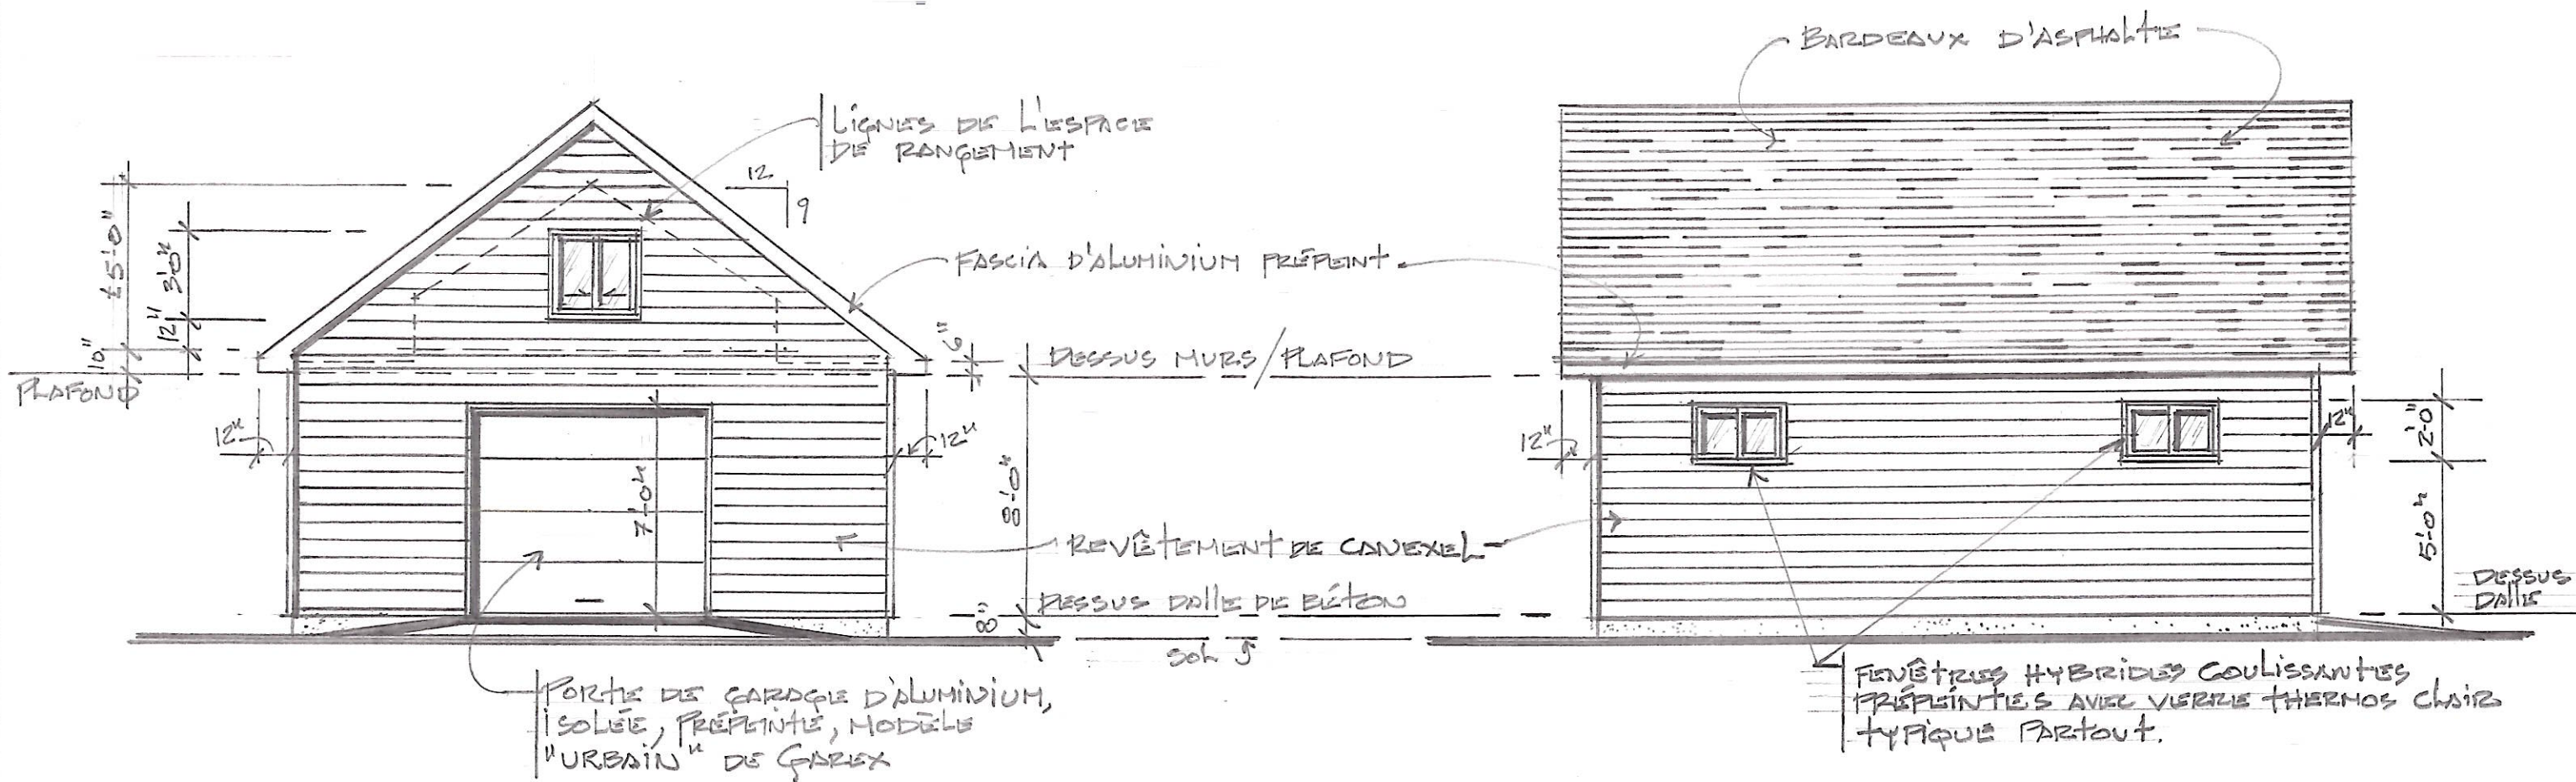 BARDEAUX D'ASPHALTE
LIGNES DE L'ESPACE
DE RANGEMENT
12
9
±5'-0"
3'-0"
12"
10"
PLAFOND
FASCIA D'ALUMINIUM PRÉPEINT.
6"
DESSUS MURS/PLAFOND
12"
12"
7'-0"
8'-0"
12"
12"
2'-0"
5'-0"
REVÊTEMENT DE CANEXEL
DESSUS DALLE DE BÉTON
8"
SOL
DESSUS
DALLE
PORTE DE GARAGE D'ALUMINIUM,
ISOLÉE, PRÉPEINTE, MODÈLE
"URBAIN" DE GAREX
FENÊTRES HYBRIDES COULISSANTES
PRÉPEINTES AVEC VERRE THERMOS CLAIR
TYPIQUE PARTOUT.